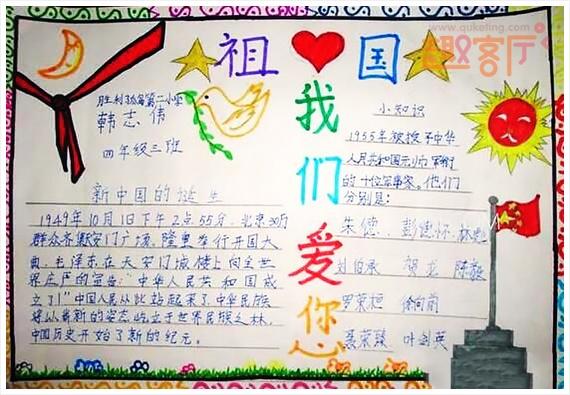 www.quketing.com
趣客厅
祖❤国
我们爱你
胜利孤岛第二小学
韩志伟
四年级三班
新中国的诞生
1949年10月1日下午2点55分,北京30万
群众齐聚天安门广场,隆重举行开国大
典,毛泽东在天安门城楼上向全世
界庄严的宣告:"中华人民共和国成
立了!"中国人民从此站起来了,中华民族
将以崭新的姿态屹立于世界民族之林,
中国历史开始了新的纪元。
小知识
1955年被授予中华
人民共和国元帅军衔
的十位军事家。他们
分别是:
朱德、彭德怀、林彪
刘伯承 贺龙 陈毅
罗荣桓 徐向前
聂荣臻 叶剑英